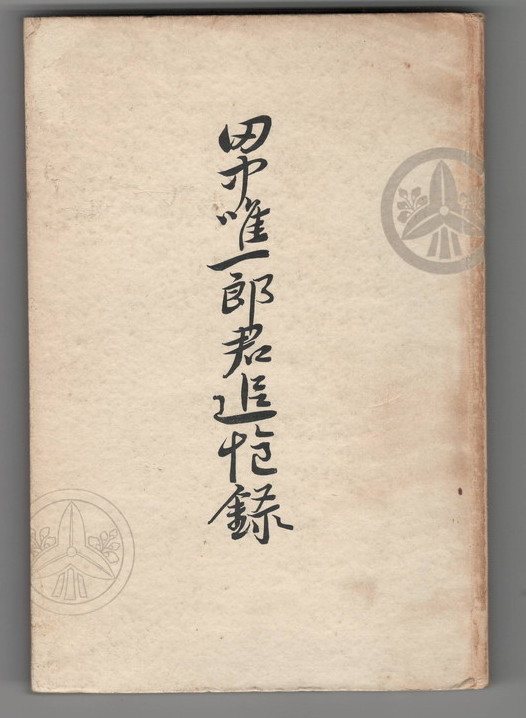 田中唯一郎君追懐録